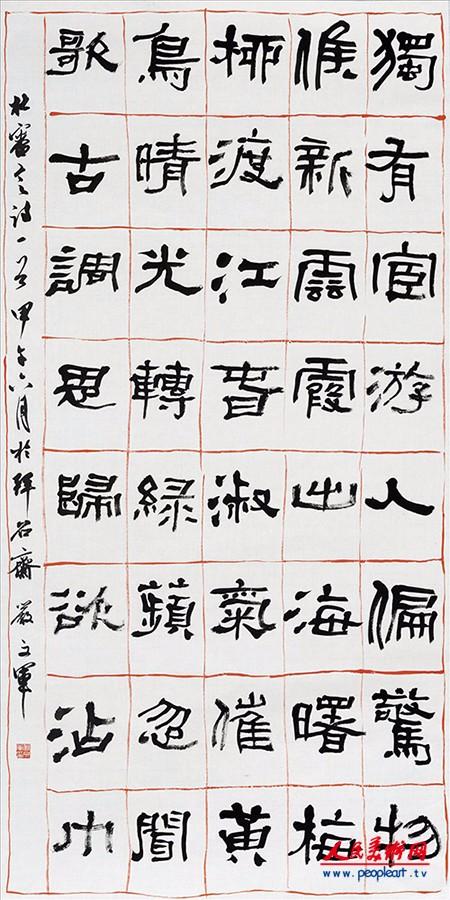 獨有宦游人偏驚物
候新雲霞出海曙梅
柳渡江春淑氣催黃
鳥晴光轉綠蘋忽聞
歌古調思歸欲沾巾
杜審言詩一首甲午六月於石齋嚴軍
人民美術网
www.peopleart.tv